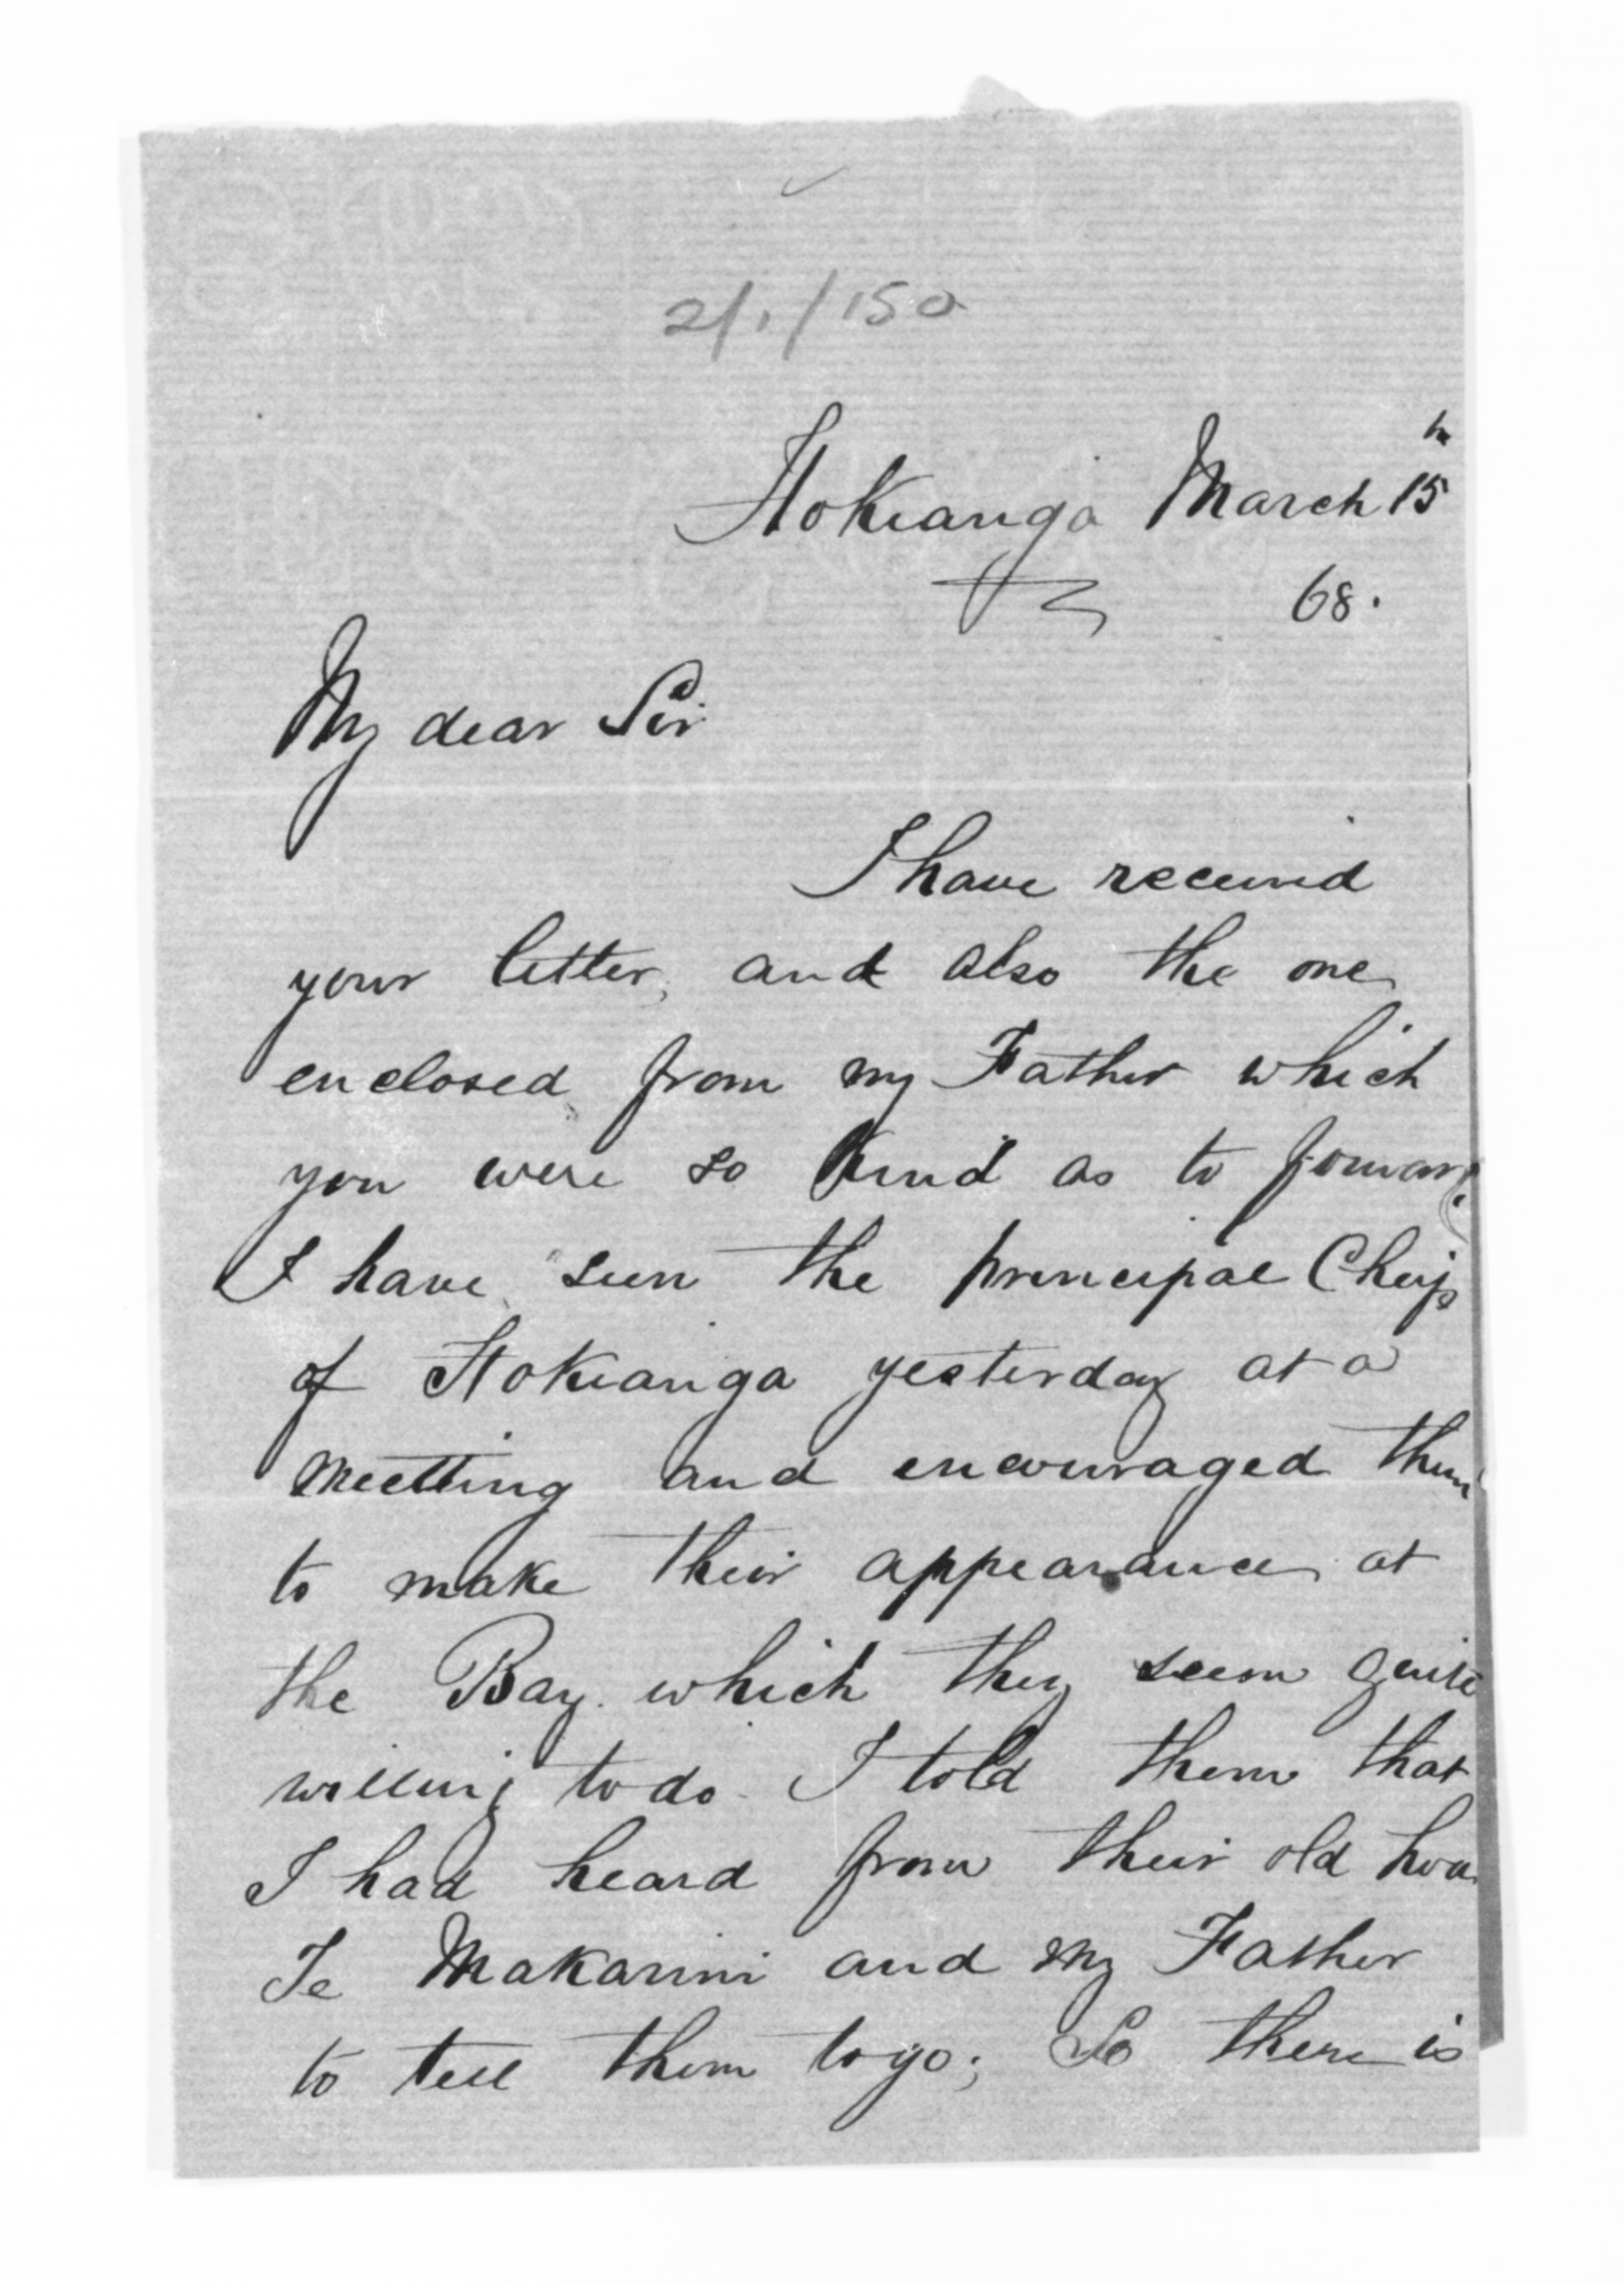 2/1/150
Hokianga March 15th
68.
My dear Sir
I have received
your letter, and also the one
enclosed from my Father which
you were so kind as to forward.
I have seen the principal Chiefs
of Hokianga yesterday at a
meetting and encouraged them
to make their appearance at
the Bay. which they seem quite
willing to do. I told them that
I had heard from their old hoa
Te Makarini and my Father
to tell them to go; So there is